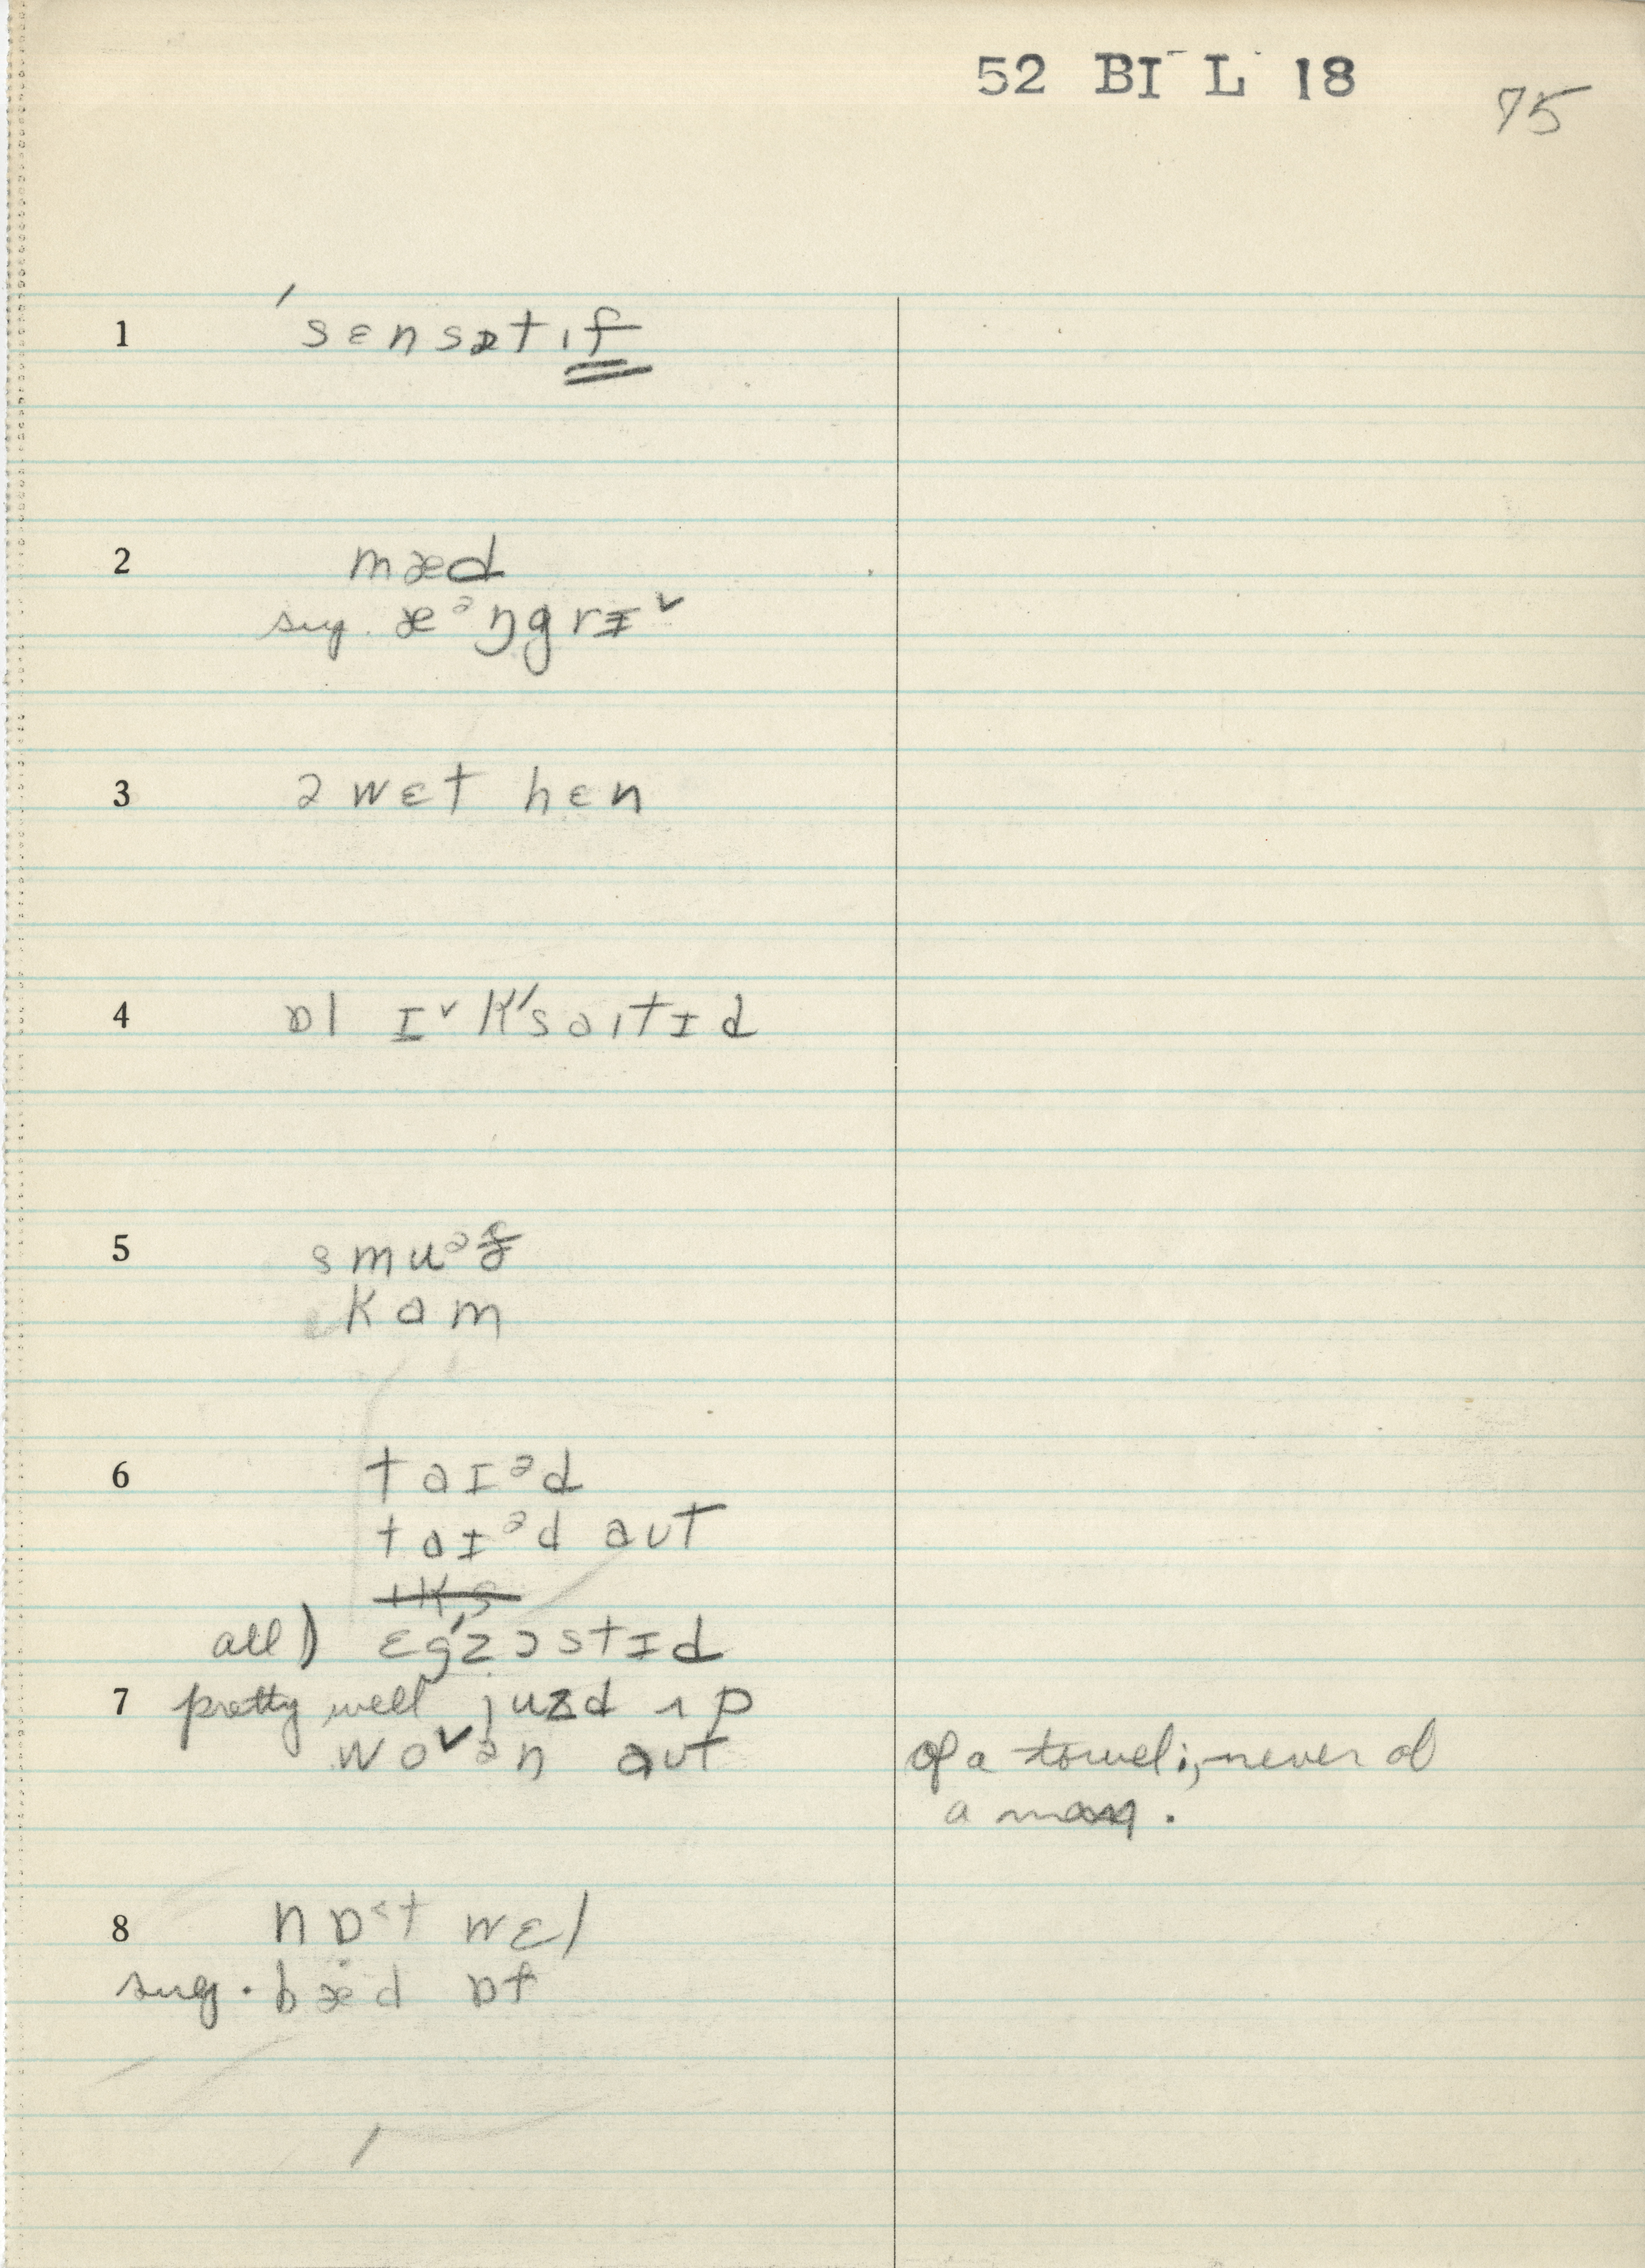 52 BI L 18
75
1 ˈsɛnsətɪf
2 mæd
sug. æᵊŋgrɪ˅
3 ə wɛt hɛn
4 ɒl ɪ˅kˈsaɪtɪd
5 smuᵊð
kam
6 taɪᵊd
taɪᵊd aut
all) ɛgˈzɔstɪd
7 pretty well juzd ʌp
wo˅ən aut of a towel; never of
a man.
8 nɒ˂t wɛl
sug. bæd ɒf